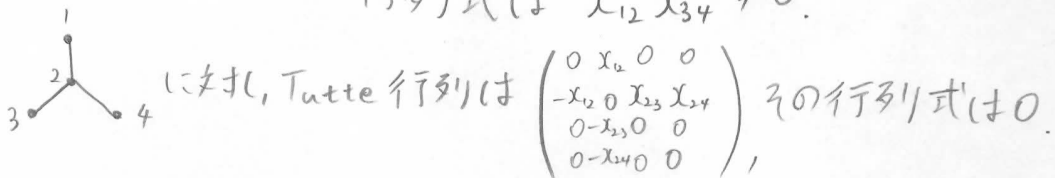 行列式は x₁₂ x₃₄
1
2
3 4
に対し, Tutte 行列は
0 x₁₂ 0 0
-x₁₂ 0 x₂₃ x₂₄
0 -x₂₃ 0 0
0 -x₂₄ 0 0
, その行列式は 0.